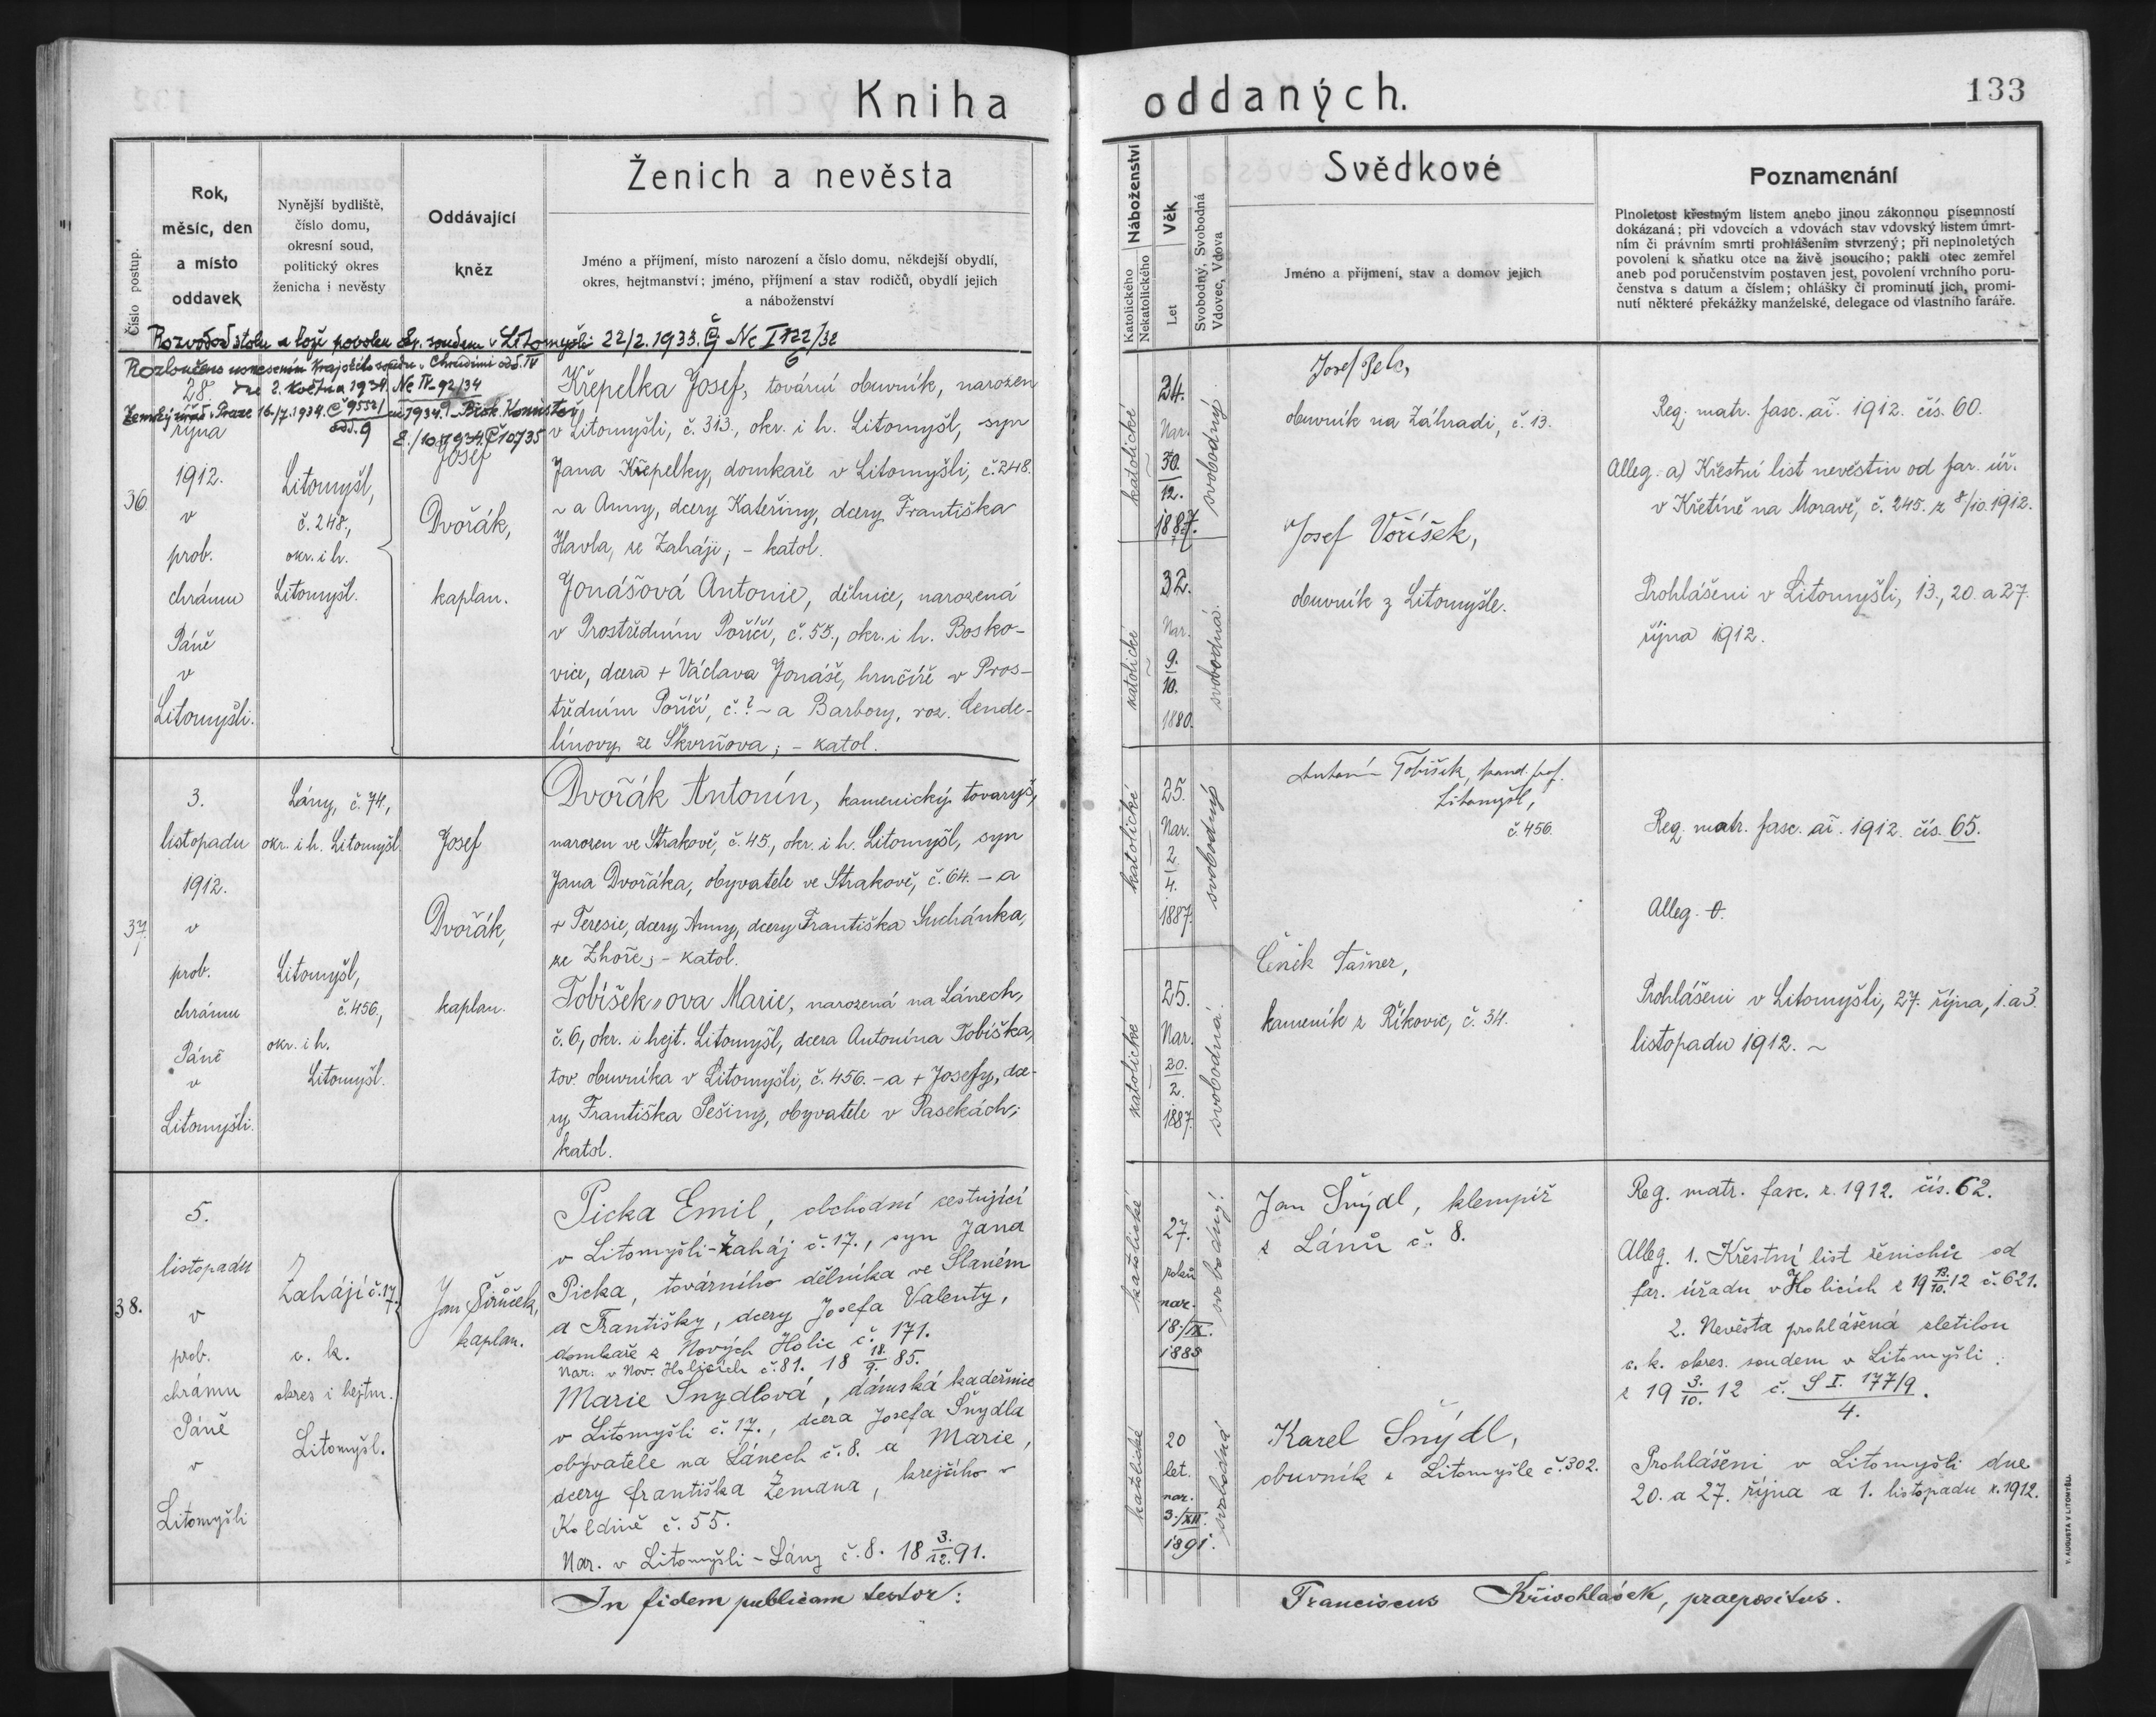 Kniha oddaných.
133
Číslo postup.
Rok,
měsíc, den
a místo
oddavek
Nynější bydliště,
číslo domu,
okresní soud,
politický okres
ženicha i nevěsty
Oddávající
kněz
Ženich a nevěsta
Jméno a příjmení, místo narození a číslo domu, někdejší obydlí,
okres, hejtmanství; jméno, příjmení a stav rodičů, obydlí jejich
a náboženství
Náboženství
Katolického
Nekatolického
Věk
Let
Svobodný, Svobodná
Vdovec, Vdova
Svědkové
Jméno a příjmení, stav a domov jejich
Poznamenání
Plnoletost křestným listem anebo jinou zákonnou písemností
dokázaná; při vdovcích a vdovách stav vdovský listem úmrt-
ním či právním smrti prohlášením stvrzený; při neplnoletých
povolení k sňatku otce na živě jsoucího; pakli otec zemřel
aneb pod poručenstvím postaven jest, povolení vrchního poru-
čenstva s datum a číslem; ohlášky či prominutí jich, promi-
nutí některé překážky manželské, delegace od vlastního faráře.
Rozvod od stolu a lože povolen okr. soudem v Litomyšli 22/2. 1933. Čj Nc I 122/32
6
Rozloučeno usnesením krajského soudu v Chrudimi odd. IV
dne 2. května 1934. Nc IV 92/34
9
Zemský úřad v Praze 16/7. 1934. Č 9552/ ai 1934. Bisk. Konsistoř
odd. 9
8./10. 1934. Č 10735
36.
28.
října
1912.
v
prob.
chrámu
Páně
v
Litomyšli.
Litomyšl,
č. 248.,
okr. i h.
Litomyšl.
Josef
Dvořák,
kaplan.
Křepelka Josef, tovární obuvník, narozen
v Litomyšli, č. 313., okr. i h. Litomyšl, syn
Jana Křepelky, domkaře v Litomyšli, č. 248.
~ a Anny, dcery Kateřiny, dcery Františka
Havla, ze Zaháje; - katol.
Jonášová Antonie, dělnice, narozená
v Prostředním Poříčí, č. 55., okr. i h. Bosko-
vice, dcera + Václava Jonáše, hrnčíře v Pros-
tředním Poříčí, č. ? ~ a Barbory, roz. Lende-
línovy ze Skrvňova; - katol.
katolické
24.
Nar.
30.
12.
1887.
svobodný
katolické
32.
Nar.
9.
10.
1880.
svobodná.
Josef Pelc,
obuvník na Záhradi, č. 13.
Josef Voříšek,
obuvník z Litomyšle.
Reg. matr. fasc. ai. 1912. čís. 60.
Alleg. a) Křestní list nevěstin od far. úř.
v Křetíně na Moravě, č. 245. z 8/10. 1912.
Prohlášeni v Litomyšli, 13., 20. a 27.
října 1912.
37.
3.
listopadu
1912.
v
prob.
chrámu
Páně
v
Litomyšli.
Lány, č. 74,
okr. i h. Litomyšl.
Litomyšl,
č. 456.,
okr. i h.
Litomyšl.
Josef
Dvořák,
kaplan.
Dvořák Antonín, kamenický tovaryš,
narozen ve Strakově, č. 45., okr. i h. Litomyšl, syn
Jana Dvořáka, obyvatele ve Strakově, č. 64. - a
+ Teresie, dcery Anny, dcery Františka Suchánka,
ze Zhoře; - katol.
Tobíšek„ova Marie, narozená na Lánech,
č. 6, okr. i hejt. Litomyšl, dcera Antonína Tobíška,
tov. obuvníka v Litomyšli, č. 456. - a + Josefy, dce-
ry Františka Pešiny, obyvatele v Pasekách;
katol.
katolické
25.
Nar.
2.
4.
1887.
svobodný
katolické
25.
Nar.
20.
2.
1887.
svobodná.
Antonín Tobíšek,
Litomyšl,
č. 456.
Čeněk Tašner,
kameník z Říkovic, č. 34.
Reg. matr. fasc. ai. 1912. čís. 65.
Alleg. 0.
Prohlášeni v Litomyšli, 27. října, 1. a 3
listopadu 1912. ~
38.
5.
listopadu
v
prob.
chrámu
Páně
v
Litomyšli
Zahájí č. 17.
c. k.
okres i hejtm.
Litomyšl.
Jan Šírůček,
kaplan.
Picka Emil, obchodní cestující
v Litomyšli-Zaháj č. 17., syn Jana
Picka, továrního dělníka ve Slaném
a Františky, dcery Josefa Valenty,
domkaře z Nových Holic č. 171.
Nar. v Nov. Holicích č. 81. 18 18./9. 85.
Marie Šnydlová, dámská kadeřnice
v Litomyšli č. 17., dcera Josefa Šnydla
obyvatele na Lánech č. 8. a Marie,
dcery Františka Zemana, krejčího v
Koldíně č. 55.
Nar. v Litomyšli - Lány č. 8. 18 3./12. 91.
katolické
27.
roků
nar.
18./IX.
1885
svobodný.
katolické
20
let.
nar.
3./XII.
1891.
svobodná
Jan Šnýdl, klempíř
z Lánů č. 8.
Karel Šnýdl,
obuvník z Litomyšle č. 302.
Reg. matr. fasc. r. 1912. čís. 62.
Alleg. 1. Křestní list ženichův od
far. úřadu v Holicích z 19 13./10. 12 č. 621.
2. Nevěsta prohlášená zletilou
c. k. okres. soudem v Litomyšli
z 19 3./10. 12 č. S I. 177/9.
4.
Prohlášeni v Litomyšli dne
20. a 27. října a 1. listopadu r. 1912.
In fidem publicam testor: Franciscus Křivohlávek, praepositus.
V. AUGUSTA V LITOMYŠLI.